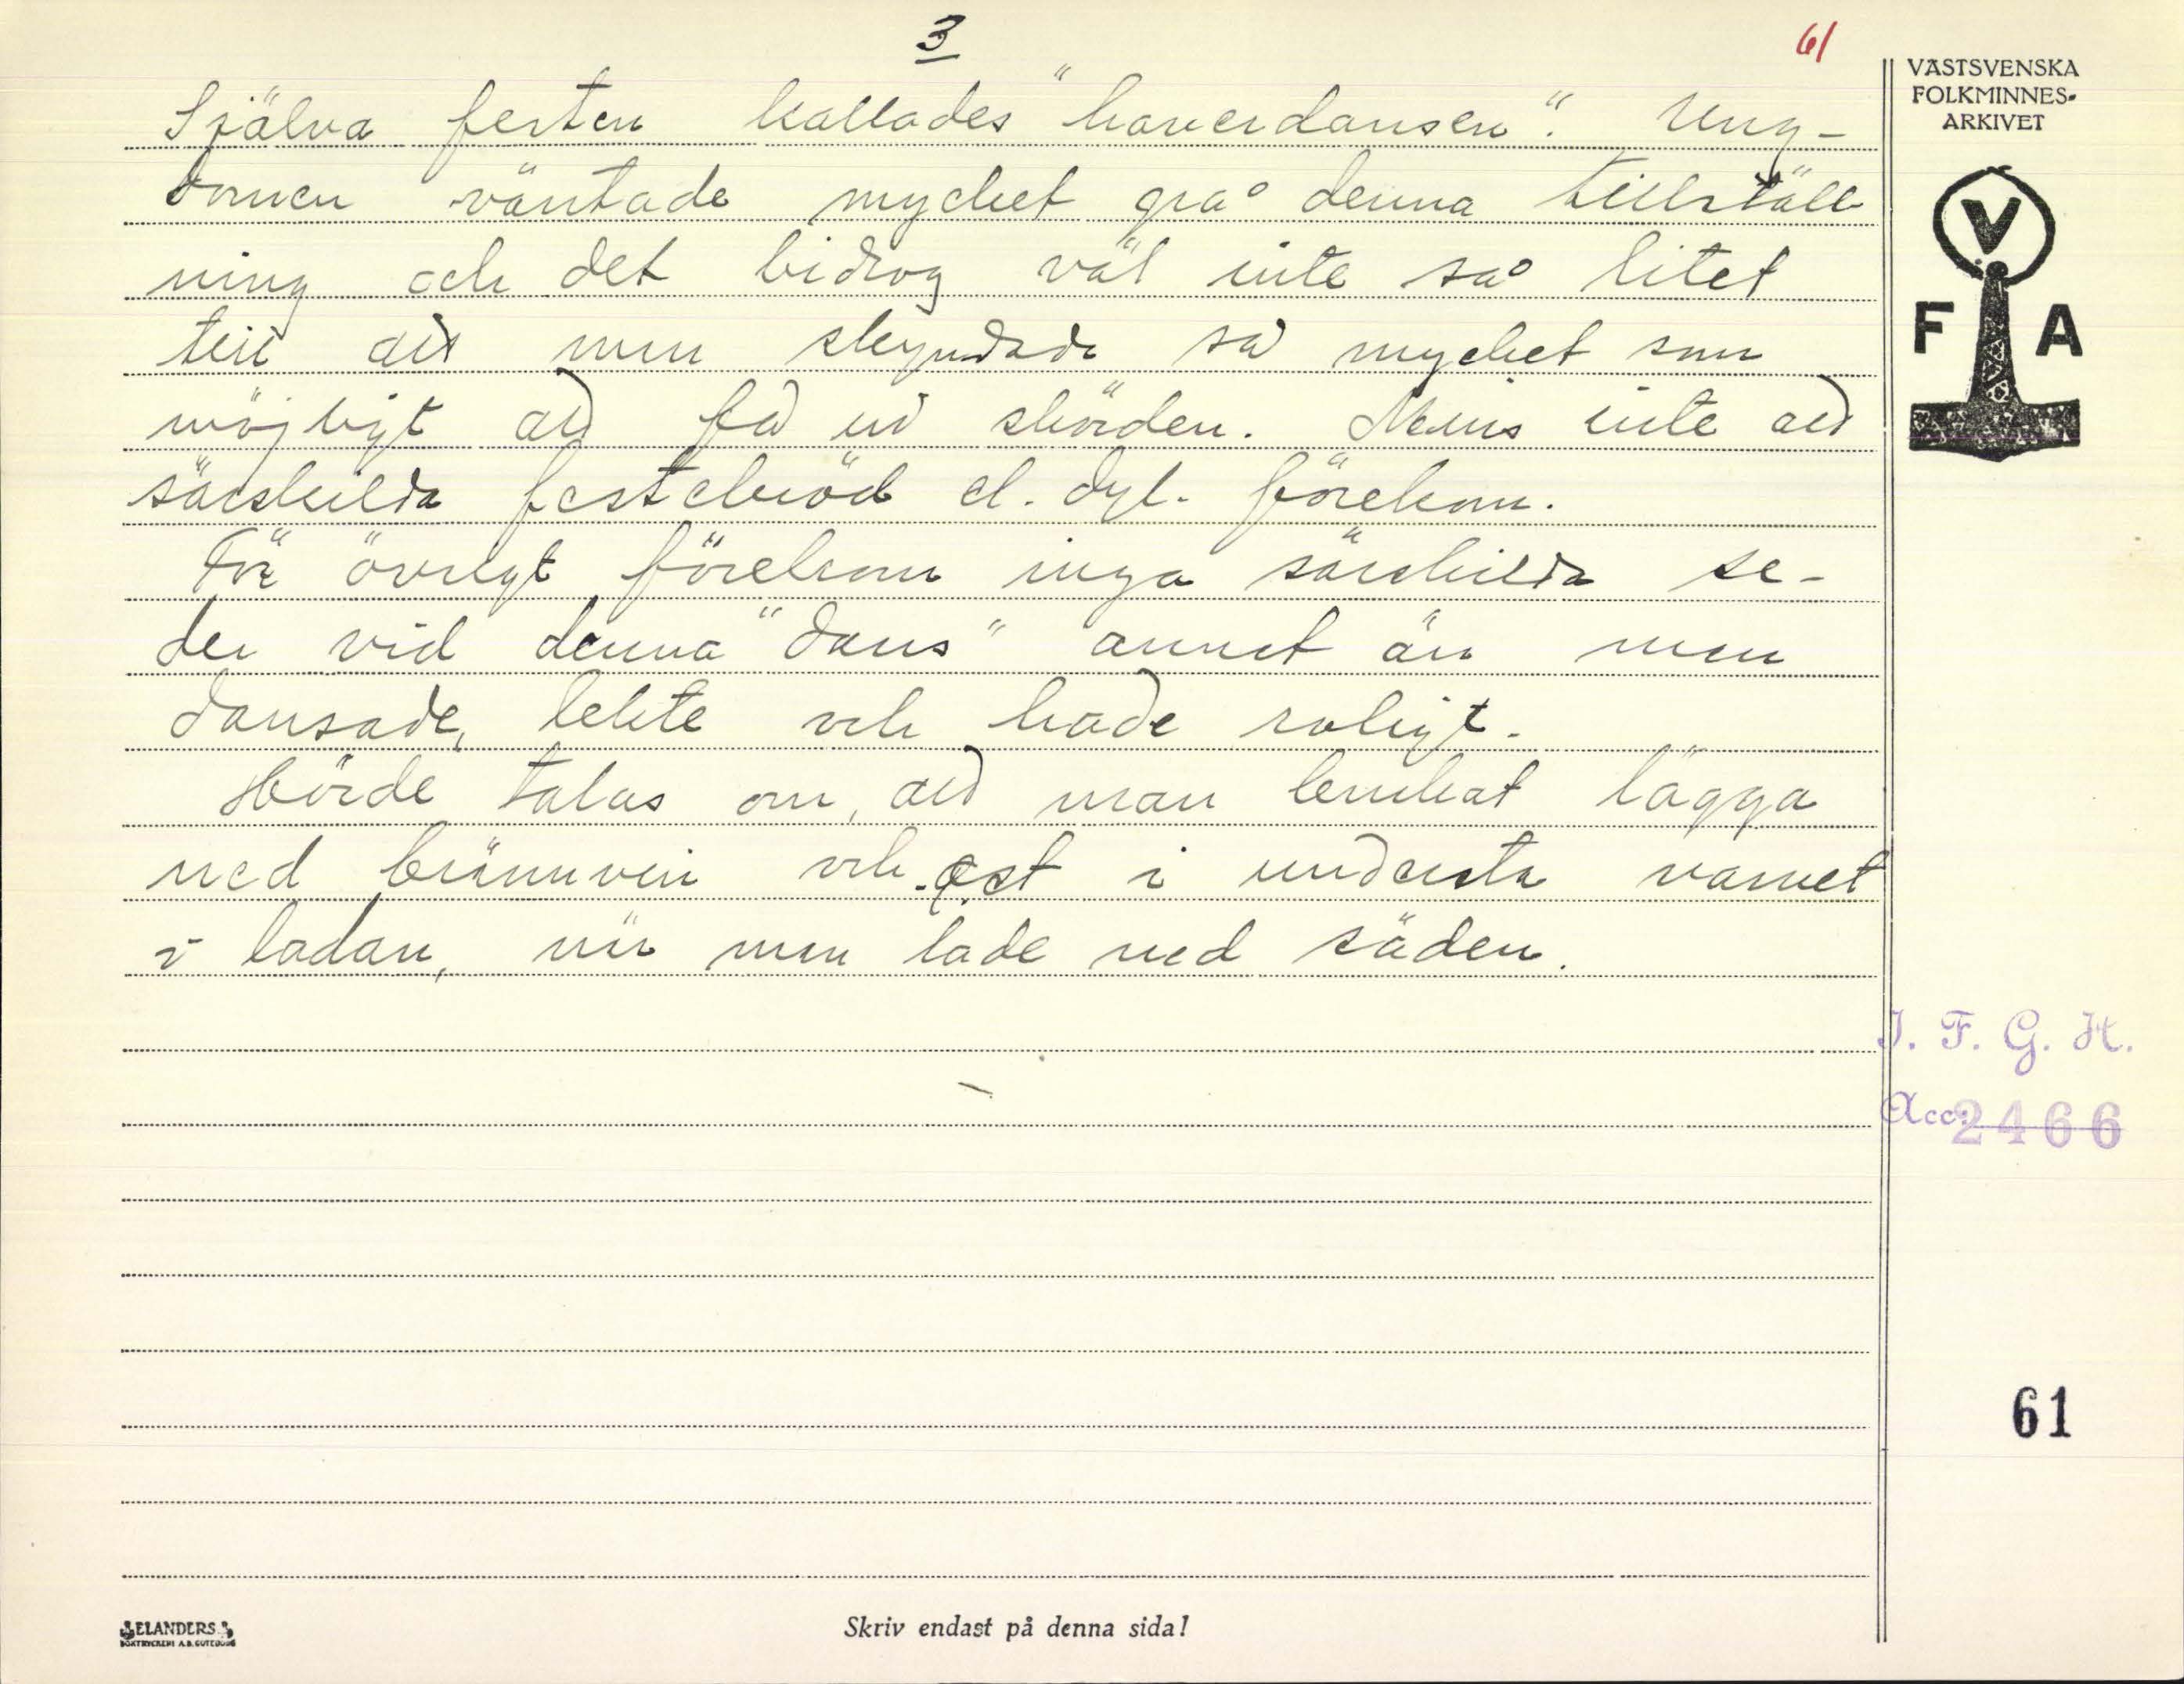 3
61
Själva festen kallades "haverdansen". Ung-
domen väntade mycket på denna tillställ
ning och det bidrog väl inte så litet
till att man skyndade så mycket som
möjligt att få in skörden. Minns inte att
särskilda festebröd el. dyl. förekom.
För övrigt förekom inga särskilda se-
der vid denna "dans" annat än man
dansade, lekte och hade roligt.
Hörde talas om, att man brukat lägga
ned brännvin och ost i understa varvet
i ladan, när man lade ned säden.
VÄSTSVENSKA
FOLKMINNES-
ARKIVET
V
F A
I. F. G. H.
Acc: 2466
61
ELANDERS
BOKTRYCKERI A.B. GÖTEBORG
Skriv endast på denna sida!